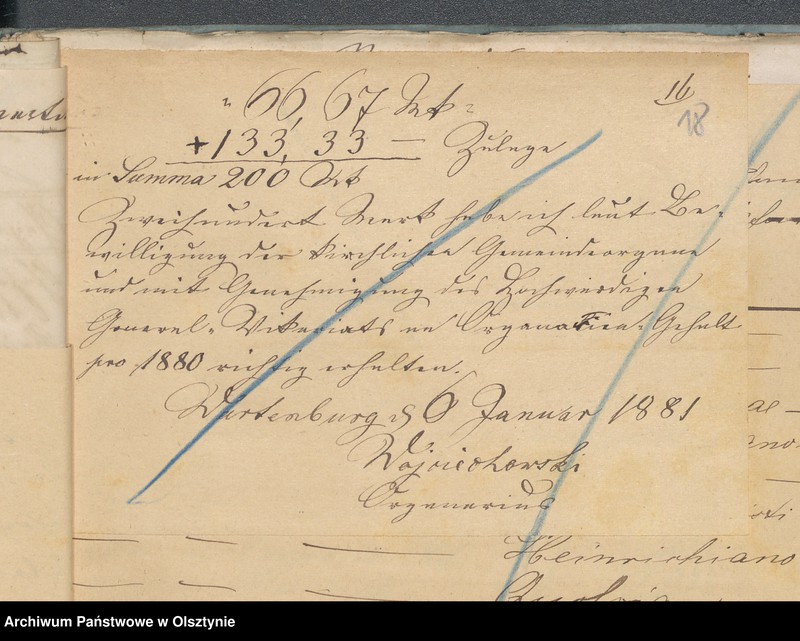 16
18
„ 66,67 Mk „
+ 133,33 — Zulage
in Summa 200 Mk
Zweihundert Mark habe ich laut Be-
willigung der kirchlichen Gemeindeorgane
und mit Genehmigung des Hochwürdigen
General-Vikariats an Organarien-Gehalt
pro 1880 richtig erhalten.
Wartenburg d 6 Januar 1881
Wojciechowski
Organarius
Heinrichiano
Archiwum Państwowe w Olsztynie